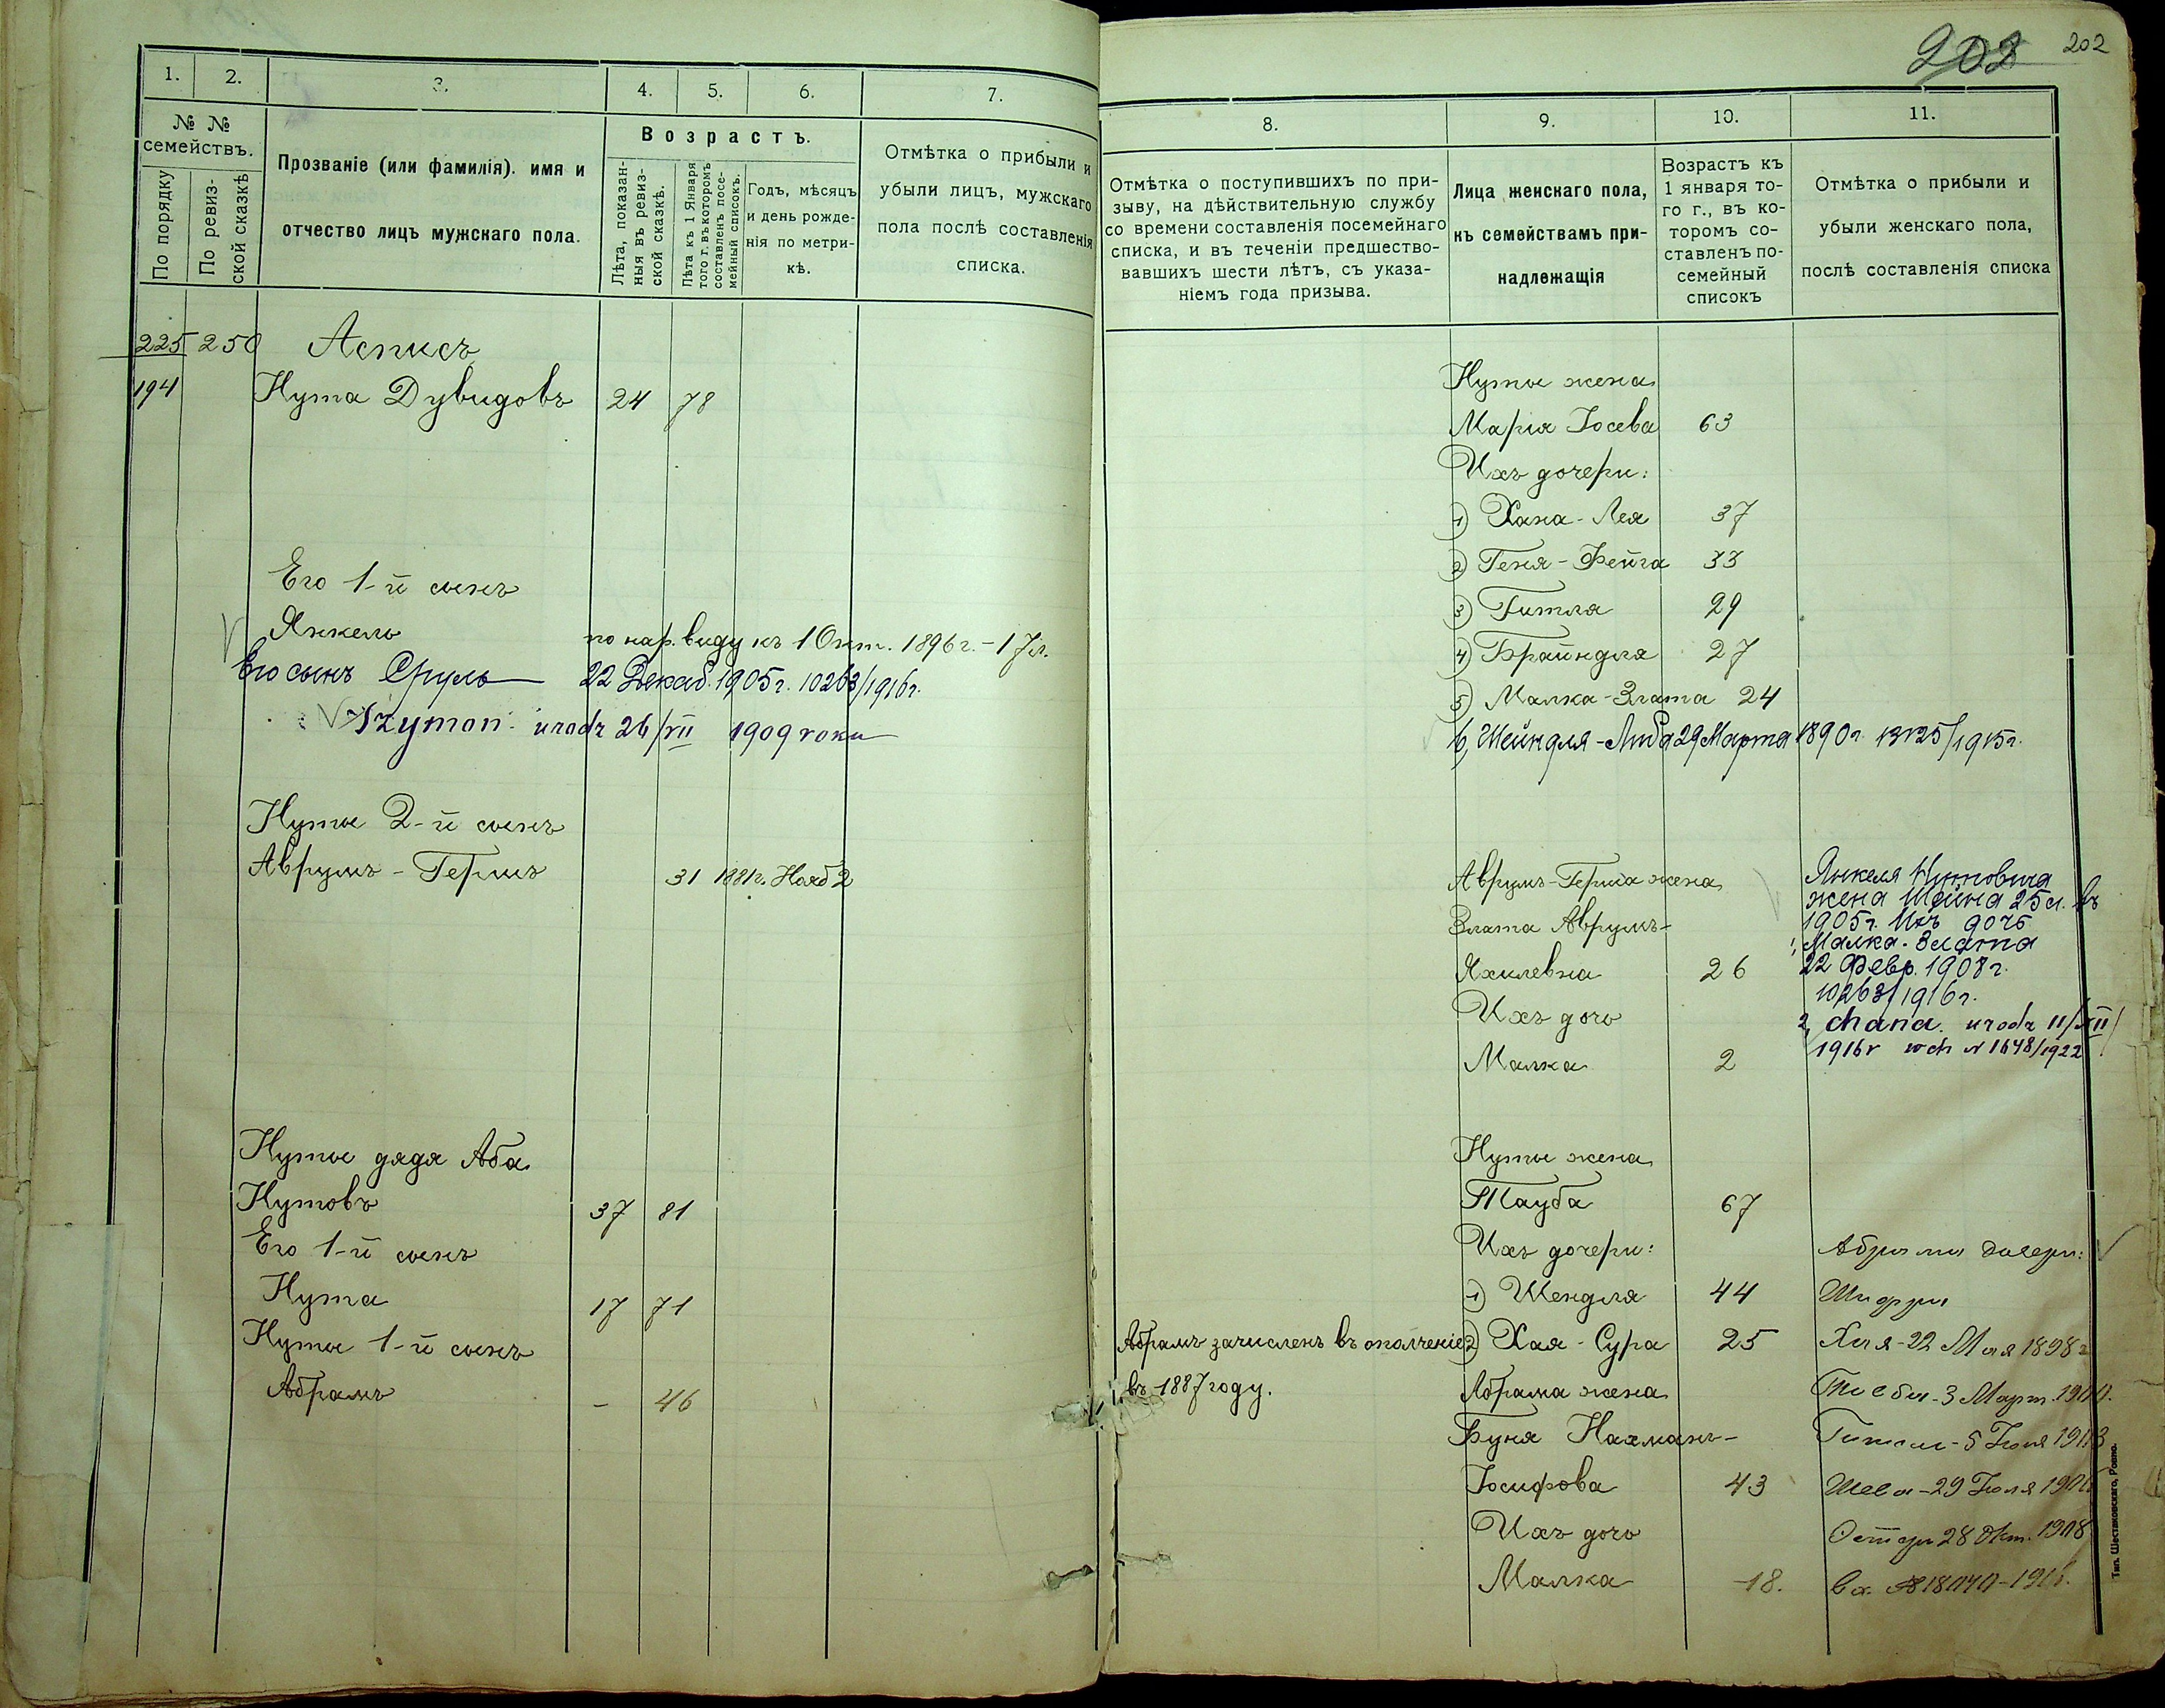 1. 2. 3. 4. 5. 6. 7.
№ №
семействъ.
По порядку
По ревиз-
ской сказкѣ
Прозваніе (или фамилія). имя и
отчество лицъ мужскаго пола.
Возрастъ.
Лѣта, показан-
ныя въ ревиз-
ской сказкѣ.
Лѣта къ 1 Января
того г. въ которомъ
составленъ посе-
мейный списокъ.
Годъ, мѣсяцъ
и день рожде-
нія по метри-
кѣ.
Отмѣтка о прибыли и
убыли лицъ, мужскаго
пола послѣ составленія
списка.
225 250 Аспись
194 Нута Дувидовъ 24 78
Его 1-й сынъ
Янкель по нар. виду къ 1 Окт. 1896 г. - 17 л.
Его сынъ Сруль 22 Декаб. 1905 г. 10263/1916 г.
Szymon urodz 26/VII 1909 roku
Нуты 2-й сынъ
Аврумъ-Гершъ 31 1881 г. Нояб 2
Нуты дядя Аба
Нутовъ 37 81
Его 1-й сынъ
Нута 17 71
Нуты 1-й сынъ
Абрамъ - 46
202 202
8. 9. 10. 11.
Отмѣтка о поступившихъ по при-
зыву, на дѣйствительную службу
со времени составленія посемейнаго
списка, и въ теченіи предшество-
вавшихъ шести лѣтъ, съ указа-
ніемъ года призыва.
Лица женскаго пола,
къ семействамъ при-
надлежащія
Возрастъ къ
1 января то-
го г., въ ко-
торомъ со-
ставленъ по-
семейный
списокъ
Отмѣтка о прибыли и
убыли женскаго пола,
послѣ составленія списка
Нуты жена
Марія Іосева 63
Ихъ дочери:
1) Хана-Лея 37
2) Геня-Фейга 33
3) Гитля 29
4) Брайндля 27
5) Малка-Злата 24
6, Шейндля-Люба 29 Марта 1890 г. 13125/1915 г.
Аврумъ-Герша жена
Злата Аврумъ-
Яхилевна 26
Ихъ дочь
Малка 2
Янкеля Нутовича
жена Шейна 25 л. въ
1905 г. Ихъ дочь
1, Малка-Злата
22 Февр. 1908 г.
10263/1916 г.
2, Chana urodz 11/XII
1916 r wch N 1648/1922
Нуты жена
Тауба 67
Ихъ дочери:
1) Шендля 44
2) Хая-Сура 25
Абрамъ зачисленъ въ ополченіе
въ 1887 году.
Абрама жена
Буня Нахманъ-
Іосифова 43
Ихъ дочь
Малка 18.
Абрама дочери:
Шифра
Хая-22 Мая 1898 г
3 Март. 1900.
5 Іюня 1903
29 Іюля 1906
28 Окт. 1908
вх. №
Тип. Шестаковскаго, Ровно.